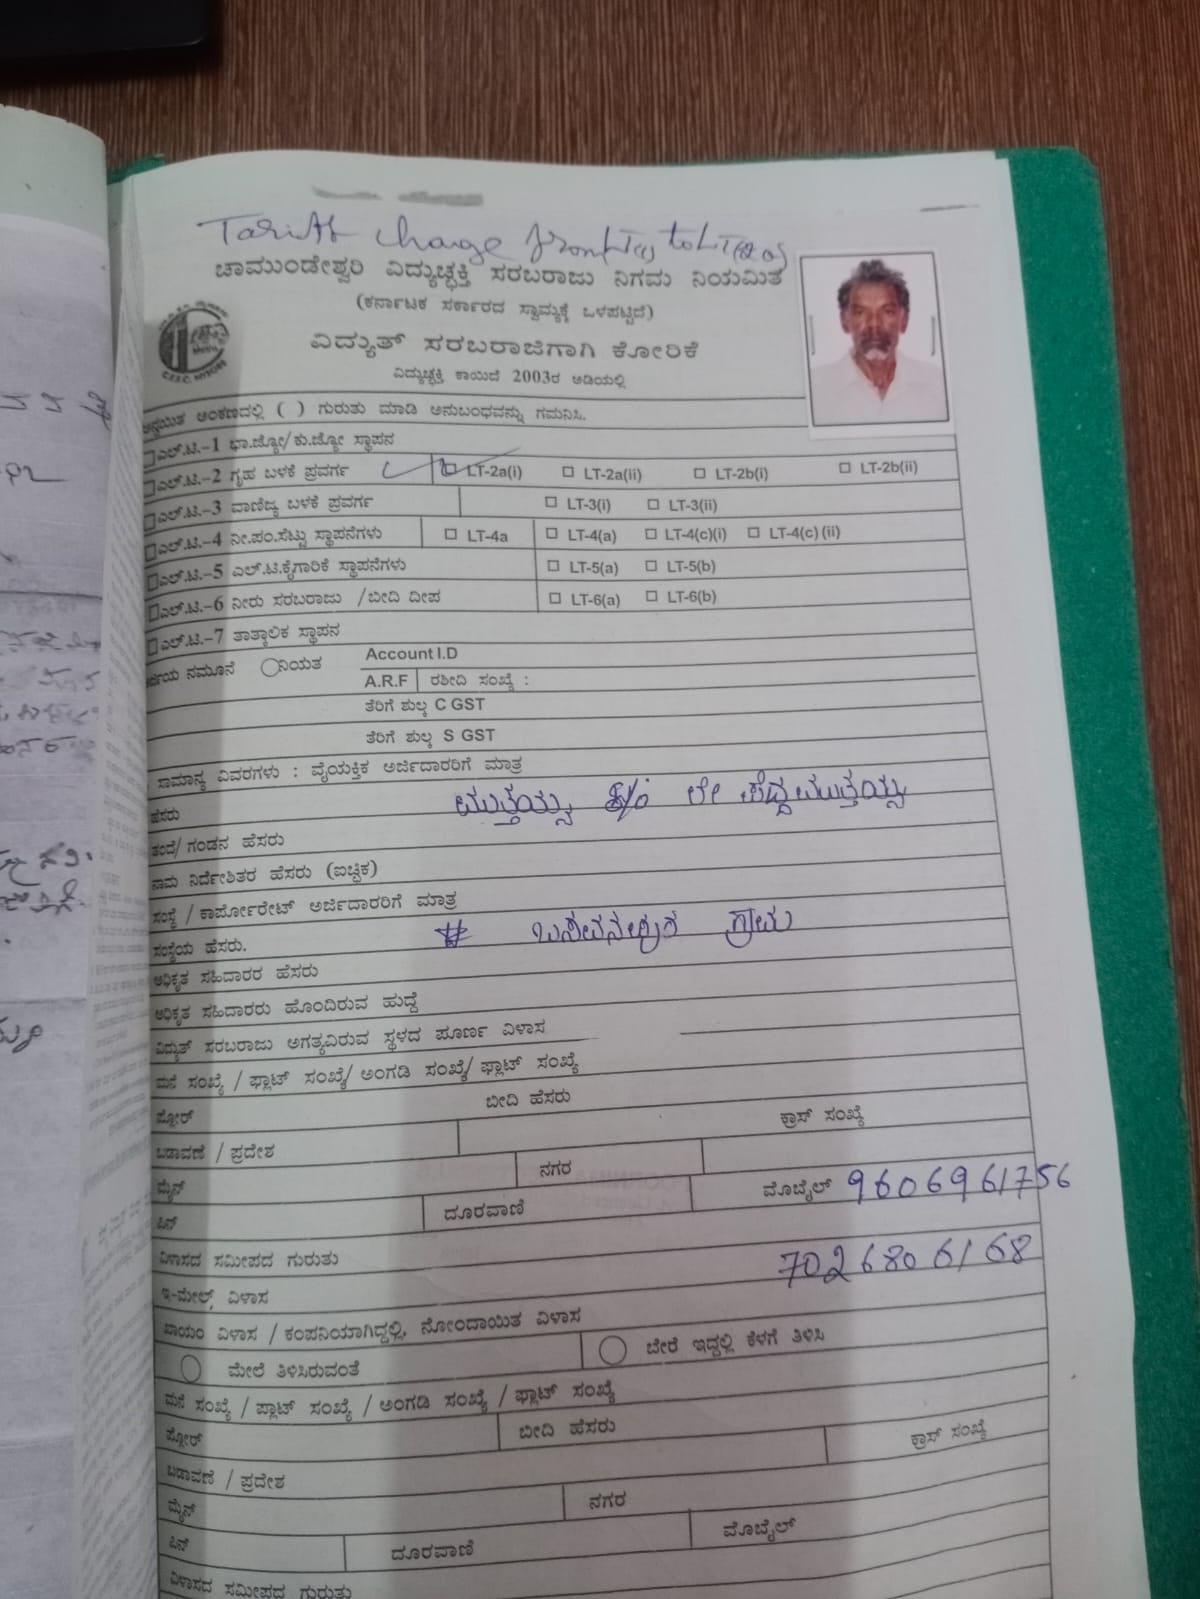 Tariff change from LT(1) to LT(2a)
ಚಾಮುಂಡೇಶ್ವರಿ ವಿದ್ಯುಚ್ಛಕ್ತಿ ಸರಬರಾಜು ನಿಗಮ ನಿಯಮಿತ
(ಕರ್ನಾಟಕ ಸರ್ಕಾರದ ಸ್ವಾಮ್ಯಕ್ಕೆ ಒಳಪಟ್ಟಿದೆ)
ವಿದ್ಯುತ್ ಸರಬರಾಜಿಗಾಗಿ ಕೋರಿಕೆ
ವಿದ್ಯುಚ್ಛಕ್ತಿ ಕಾಯಿದೆ 2003ರ ಅಡಿಯಲ್ಲಿ
C.E.S.C, MYSORE
ಅನ್ವಯಿತ ಅಂಕಣದಲ್ಲಿ ( ) ಗುರುತು ಮಾಡಿ ಅನುಬಂಧವನ್ನು ಗಮನಿಸಿ.
ಎಲ್.ಟಿ.-1 ಭಾ.ಜ್ಯೋ/ ಕು.ಜ್ಯೋ ಸ್ಥಾಪನ
ಎಲ್.ಟಿ.-2 ಗೃಹ ಬಳಕೆ ಪ್ರವರ್ಗ LT-2a(i) LT-2a(ii) LT-2b(i) LT-2b(ii)
ಎಲ್.ಟಿ.-3 ವಾಣಿಜ್ಯ ಬಳಕೆ ಪ್ರವರ್ಗ LT-3(i) LT-3(ii)
ಎಲ್.ಟಿ.-4 ನೀ.ಪಂ.ಸೆಟ್ಟು ಸ್ಥಾಪನೆಗಳು LT-4a LT-4(a) LT-4(c)(i) LT-4(c) (ii)
ಎಲ್.ಟಿ.-5 ಎಲ್.ಟಿ.ಕೈಗಾರಿಕೆ ಸ್ಥಾಪನೆಗಳು LT-5(a) LT-5(b)
ಎಲ್.ಟಿ.-6 ನೀರು ಸರಬರಾಜು /ಬೀದಿ ದೀಪ LT-6(a) LT-6(b)
ಎಲ್.ಟಿ.-7 ತಾತ್ಕಾಲಿಕ ಸ್ಥಾಪನ
ನಮೂನೆ ನಿಯತ Account I.D
A.R.F ರಶೀದಿ ಸಂಖ್ಯೆ :
ತೆರಿಗೆ ಶುಲ್ಕ C GST
ತೆರಿಗೆ ಶುಲ್ಕ S GST
ಸಾಮಾನ್ಯ ವಿವರಗಳು : ವೈಯಕ್ತಿಕ ಅರ್ಜಿದಾರರಿಗೆ ಮಾತ್ರ
ಹೆಸರು ಮುತ್ತಯ್ಯ S/o ಲೇ ಪೆದ್ದಮುತ್ತಯ್ಯ
ತಂದೆ/ ಗಂಡನ ಹೆಸರು
ನಾಮ ನಿರ್ದೇಶಿತರ ಹೆಸರು (ಐಚ್ಛಿಕ)
ಸಂಸ್ಥೆ / ಕಾರ್ಪೋರೇಟ್ ಅರ್ಜಿದಾರರಿಗೆ ಮಾತ್ರ
ಸಂಸ್ಥೆಯ ಹೆಸರು. # ಗ್ರಾಮ
ಅಧಿಕೃತ ಸಹಿದಾರರ ಹೆಸರು
ಅಧಿಕೃತ ಸಹಿದಾರರು ಹೊಂದಿರುವ ಹುದ್ದೆ
ವಿದ್ಯುತ್ ಸರಬರಾಜು ಅಗತ್ಯವಿರುವ ಸ್ಥಳದ ಪೂರ್ಣ ವಿಳಾಸ
ಮನೆ ಸಂಖ್ಯೆ / ಫ್ಲಾಟ್ ಸಂಖ್ಯೆ/ ಅಂಗಡಿ ಸಂಖ್ಯೆ/ ಫ್ಲಾಟ್ ಸಂಖ್ಯೆ
ಫ್ಲೋರ್ ಬೀದಿ ಹೆಸರು ಕ್ರಾಸ್ ಸಂಖ್ಯೆ
ಬಡಾವಣೆ / ಪ್ರದೇಶ
ಮೈನ್ ನಗರ
ಪಿನ್ ದೂರವಾಣಿ ಮೊಬೈಲ್ 9606961756
ವಿಳಾಸದ ಸಮೀಪದ ಗುರುತು 7026806168
ಇ-ಮೇಲ್ ವಿಳಾಸ
ಖಾಯಂ ವಿಳಾಸ / ಕಂಪನಿಯಾಗಿದ್ದಲ್ಲಿ, ನೋಂದಾಯಿತ ವಿಳಾಸ
ಮೇಲೆ ತಿಳಿಸಿರುವಂತೆ ಬೇರೆ ಇದ್ದಲ್ಲಿ ಕೆಳಗೆ ತಿಳಿಸಿ
ಮನೆ ಸಂಖ್ಯೆ / ಪ್ಲಾಟ್ ಸಂಖ್ಯೆ / ಅಂಗಡಿ ಸಂಖ್ಯೆ / ಫ್ಲಾಟ್ ಸಂಖ್ಯೆ
ಫ್ಲೋರ್ ಬೀದಿ ಹೆಸರು ಕ್ರಾಸ್ ಸಂಖ್ಯೆ
ಬಡಾವಣೆ / ಪ್ರದೇಶ
ಮೈನ್ ನಗರ
ಪಿನ್ ದೂರವಾಣಿ ಮೊಬೈಲ್
ವಿಳಾಸದ ಸಮೀಪದ ಗುರುತು